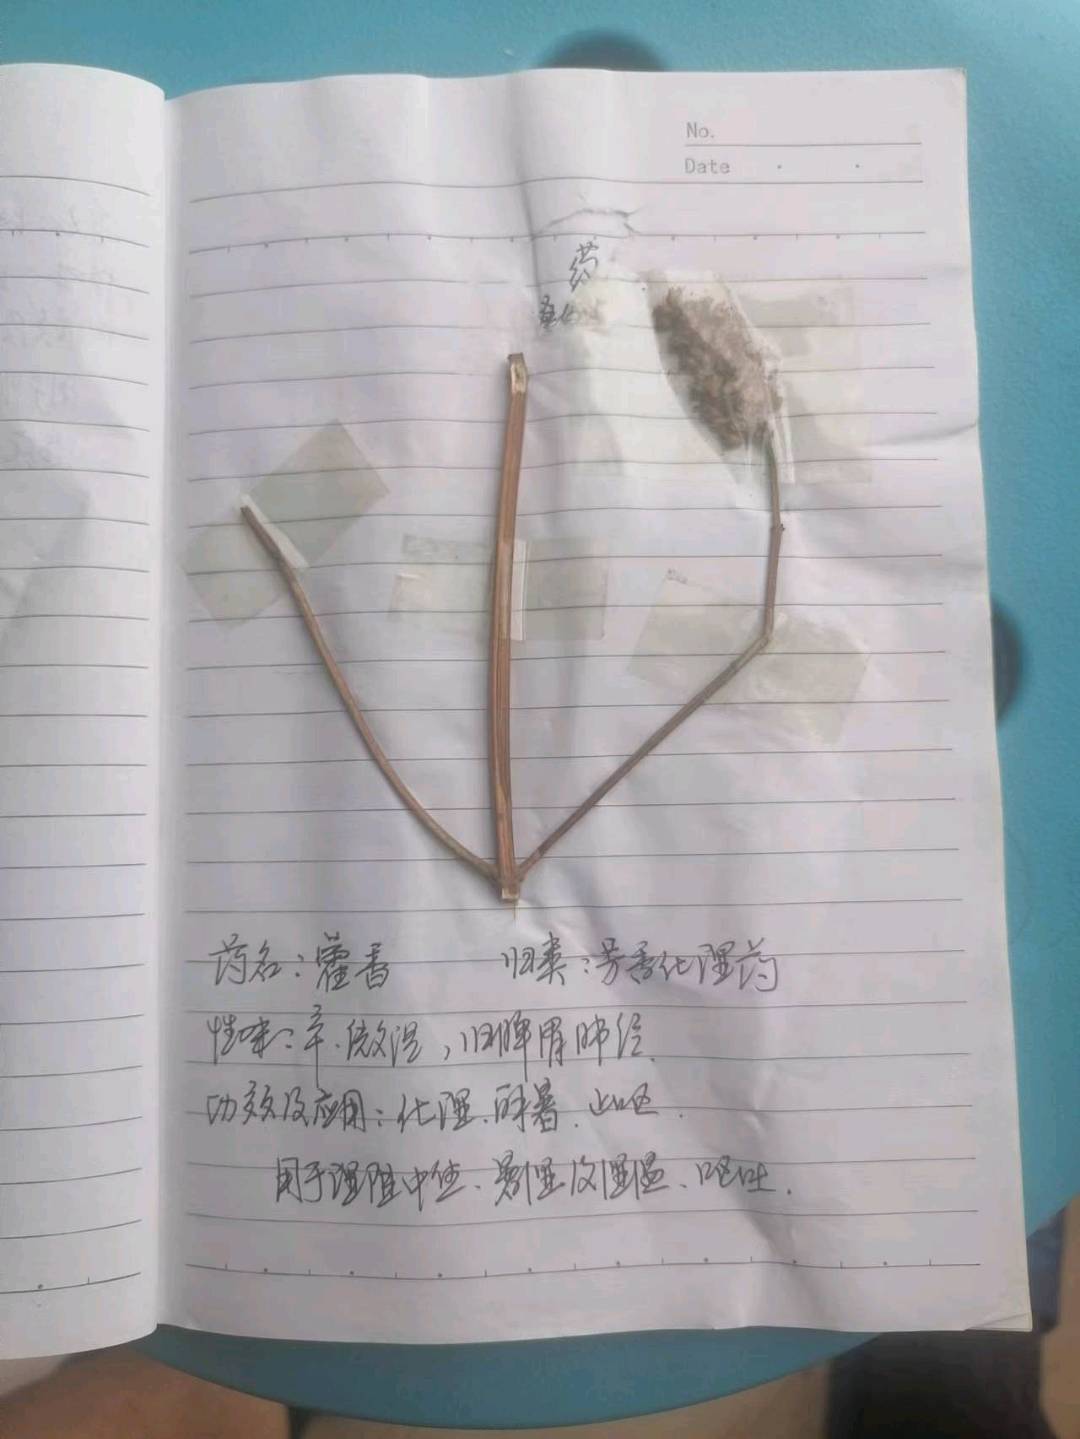 No.
Date
药
药名：藿香 归类：芳香化湿药
性味：辛、微温，归脾胃肺经.
功效及应用：化湿、解暑、止呕.
用于湿阻中焦、暑湿及湿温、呕吐.